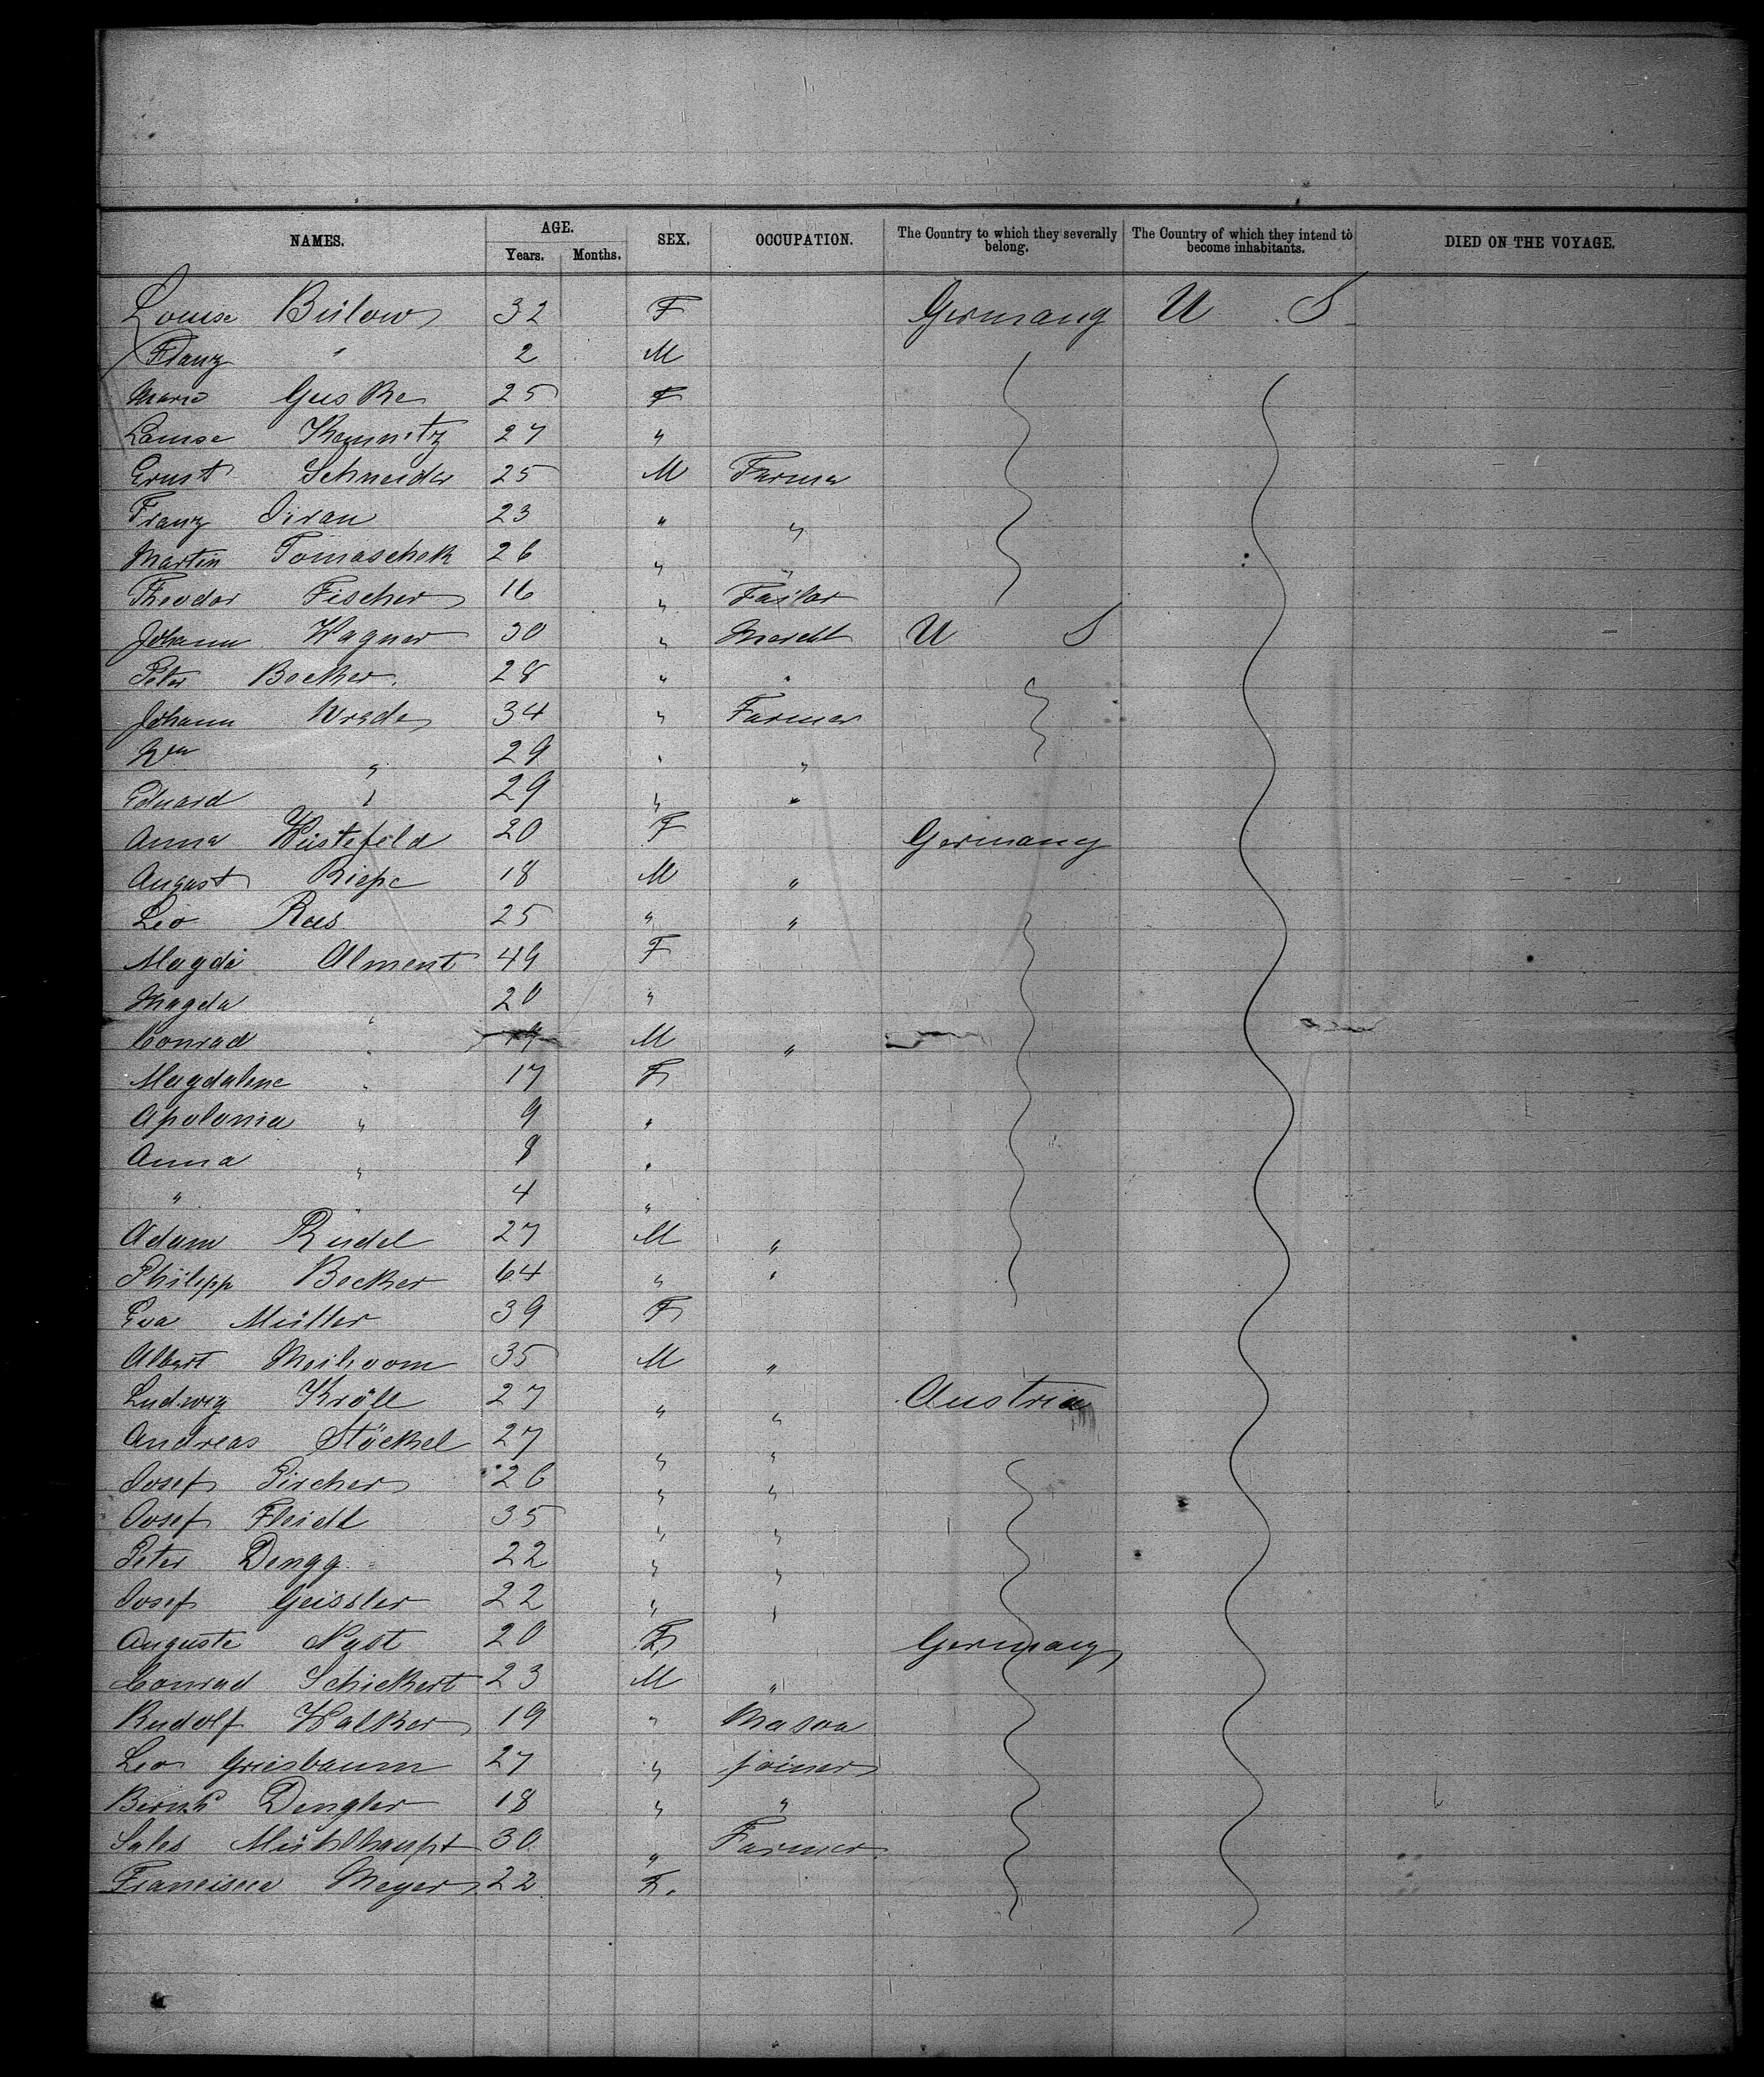 NAMES. AGE. SEX. OCCUPATION. The Country to which they severally belong. The Country of which they intend to become inhabitants. DIED ON THE VOYAGE.
Years. Months.
Louise Bülow 32 F Germany U S
Franz " 2 M
Marie Guske 25 F
Louise Kemnitz 27 "
Ernst Schneider 25 M Farmer
Franz 23 " "
Martin Tomaschek 26 " "
Theodor Fischer 16 " Tailor
Johann Wagner 30 " Mercht U S
Peter Becker. 28 " "
Johann Wrede 34 " Farmer
Wm " 29 " "
Eduard " 29 " "
Anna Wüstefeld 20 F Germany
August Riepe 18 M "
Leo Rees 25 " "
Magda Alment 49 F
Magda " 20 "
Conrad " 19 M "
Magdalene " 17 F
Apolonia " 9 "
Anna " 8 "
" " 4 "
Adam Riedel 27 M "
Philipp Becker 64 " "
Eva Müller 39 F
Albert 35 M "
Ludwig Kröll 27 " " Austria
Andreas Stöckel 27 " "
Josef Pircher 26 " "
Josef Fleidl 35 " "
Peter Dengg 22 " "
Josef Geissler 22 " "
Auguste Nast 20 F Germany
Conrad Schickert 23 M "
Rudolf Walker 19 " Mason
Leo Griesbaum 27 " joiner
Bernh Dengler 18 " "
Sales Mühlhaupt 30 " Farmer
Francisca Meyer 22 F.